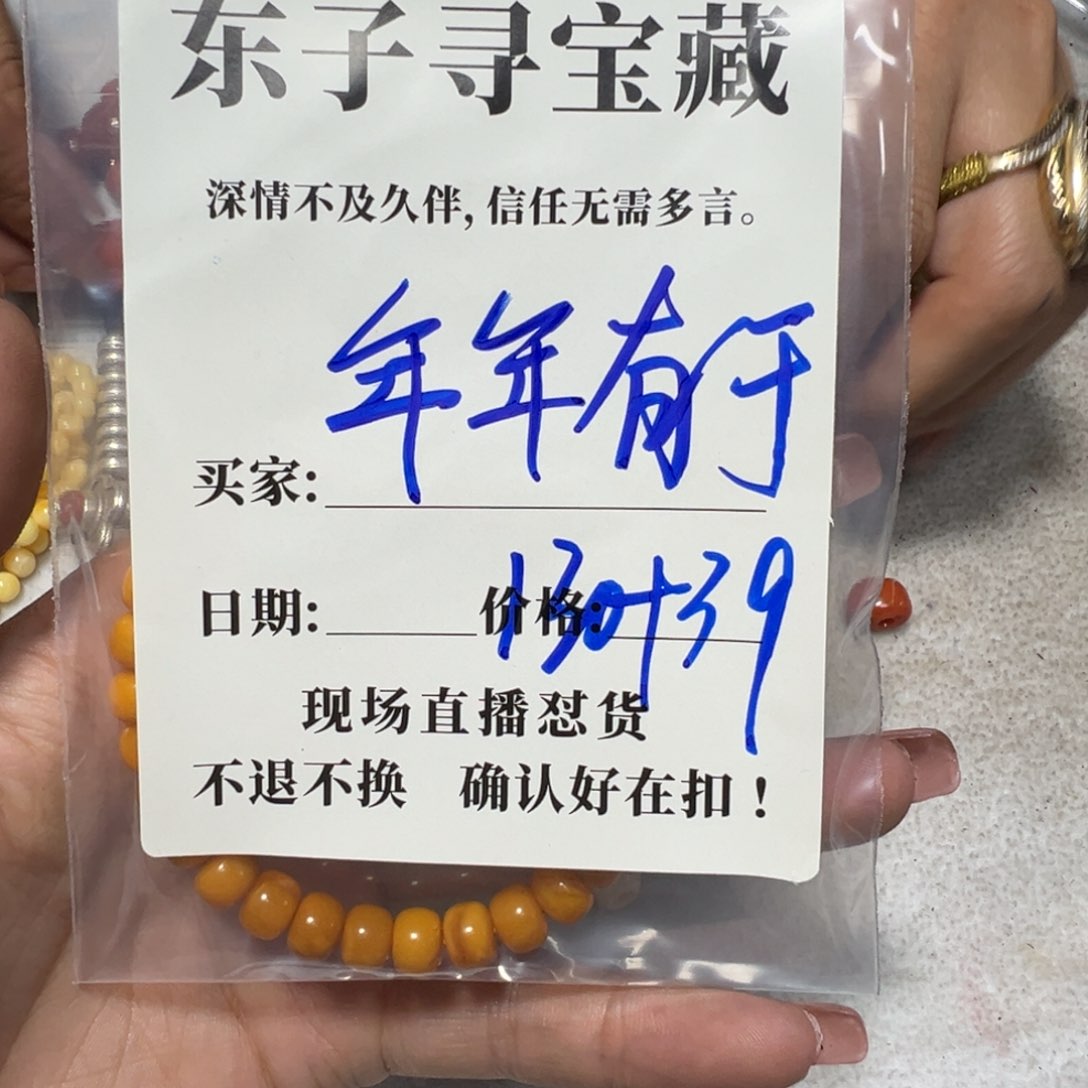 东子寻宝藏
深情不及久伴,信任无需多言。
买家: 年年有
日期: 价格: 130+39
现场直播怼货
不退不换 确认好在扣!